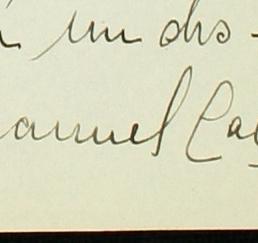 un dis-
anuel Ca